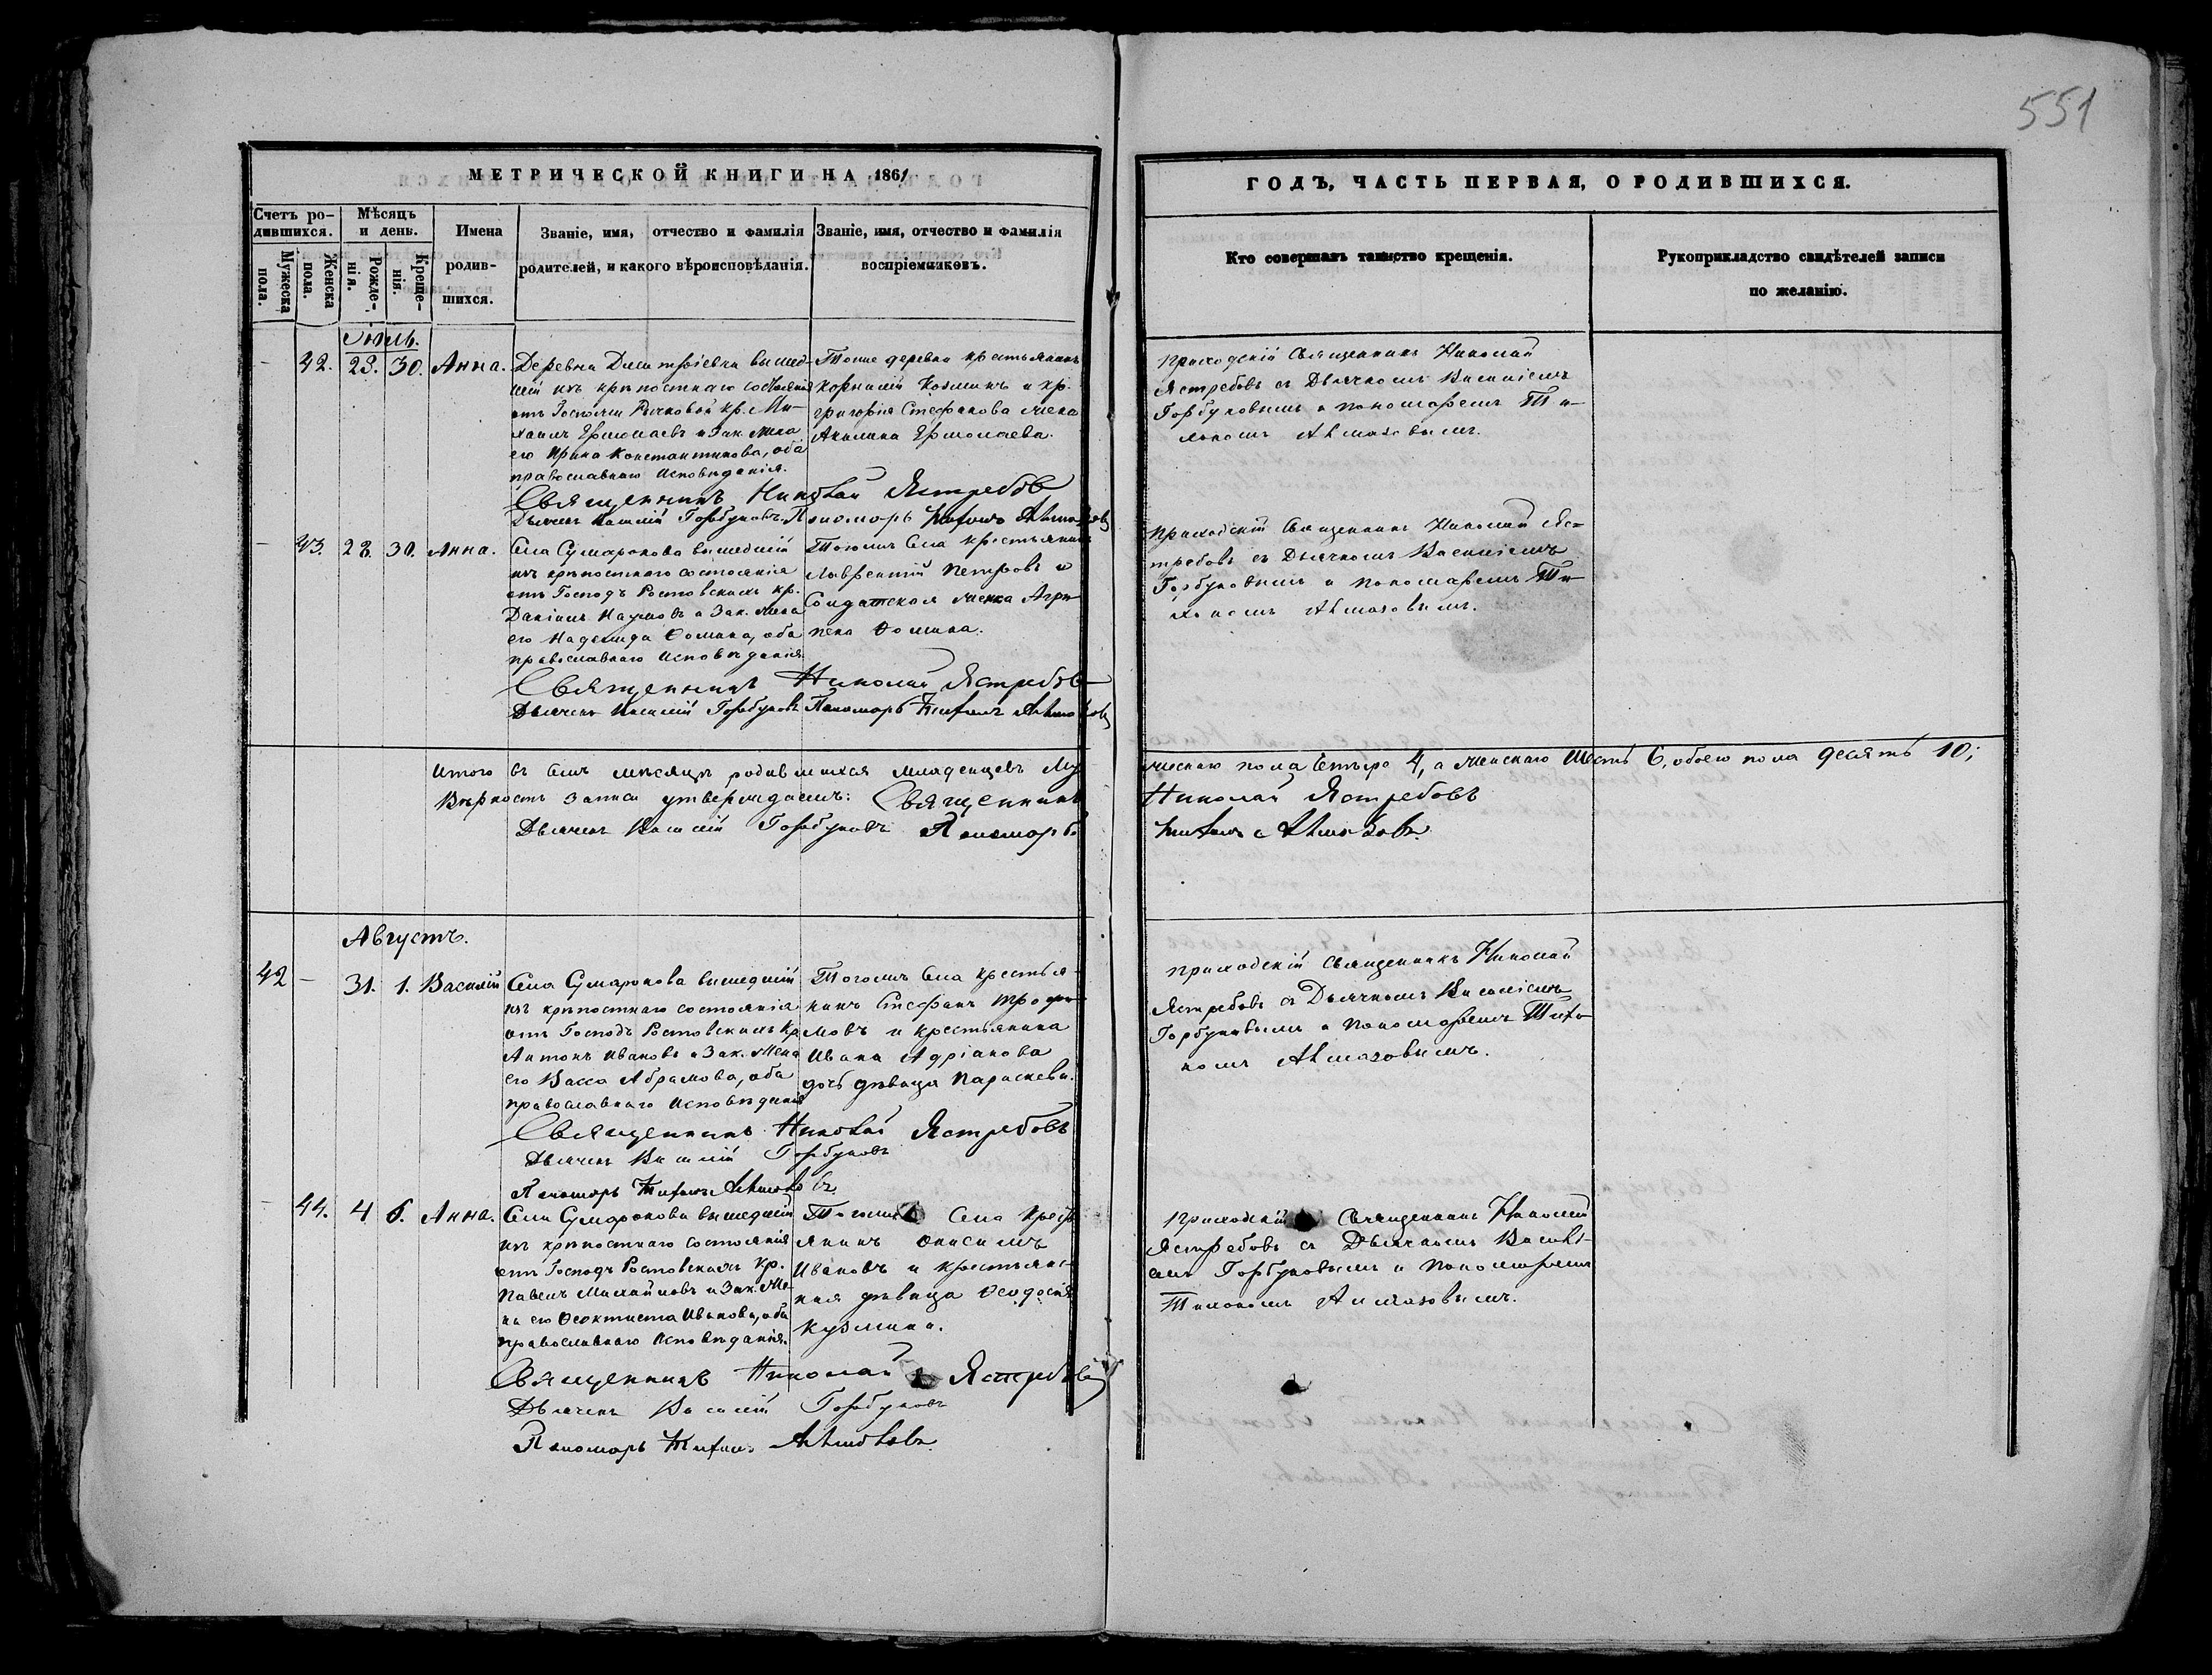 551
МЕТРИЧЕСКОЙ КНИГИ НА 1861
ГОДЪ, ЧАСТЬ ПЕРВАЯ, О РОДИВШИХСЯ.
Счетъ ро-
дившихся.
Мужеска
пола.
Женска
пола.
Мѣсяцъ
и день.
Рожде-
нія.
Креще-
нія.
Имена
родив-
шихся.
Званіе, имя, отчество и фамилія
родителей, и какого вѣроисповѣданія.
Званіе, имя, отчество и фамилія
воспріемниковъ.
Кто совершалъ таинство крещенія.
Рукоприкладство свидѣтелей записи
по желанію.
Іюль.
– 42. 28. 30. Анна.
Деревни Дмитріевки вышед-
шій изъ крѣпостнаго состоянія
отъ Госпожи Рычковой кр. Ми-
хаилъ Ермолаевъ и Зак. жена
его Ирина Константинова, оба
православнаго исповѣданія.
Тоже деревни крестьянинъ
Корнилій Козминъ и кр.
Григорія Стефанова жена
Акилина Ермолаева.
Приходскій Священникъ Николай
Ястребовъ съ Дьячкомъ Василіемъ
Горбуновымъ и пономаремъ Ти-
хономъ Алмазовымъ.
Священникъ Николай Ястребовъ
Дьячекъ Василій Горбуновъ. Пономарь Тихонъ Алмазовъ
– 43. 28. 30. Анна.
Села Сумарокова вышедшій
изъ крѣпостнаго состоянія
отъ Господъ Ростовскихъ кр.
Даніилъ Наумовъ и Зак. жена
его Надежда Ѳомина, оба
православнаго исповѣданія
Тогожъ Села крестьянинъ
Лаврентій Петровъ и
Солдатская женка Агри-
пена Ѳомина.
Приходскій Священникъ Николай Яс-
требовъ съ Дьячкомъ Василіемъ
Горбуновымъ и пономаремъ Ти-
хономъ Алмазовымъ.
Священникъ Николай Ястребовъ
Дьячекъ Василій Горбуновъ Пономарь Тихонъ Алмазовъ
Итого въ семъ мѣсяцѣ родившихся младенцевъ Му-
жескаго пола Четыре 4, а женскаго Шесть 6, обоего пола десять 10;
Вѣрность записи утверждаемъ: Священникъ
Николай Ястребовъ
Дьячекъ Василій Горбуновъ Пономарь
Тихонъ Алмазовъ.
Августъ.
42 – 31. 1. Василій
Села Сумарокова вышедшій
изъ крѣпостнаго состоянія
отъ Господъ Ростовскихъ кр.
Антонъ Ивановъ и Зак. жена
его Васса Абрамова, оба
православнаго исповѣданія
Тогожъ Села крестья-
нинъ Стефанъ Трофи-
мовъ и крестьянина
Ивана Адріанова
дочь дѣвица Параскева.
Приходскій Священникъ Николай
Ястребовъ съ Дьячкомъ Василіемъ
Горбуновымъ и пономаремъ Тихо-
номъ Алмазовымъ.
Священникъ Николай Ястребовъ
Дьячекъ Василій Горбуновъ
Пономарь Тихонъ Алмазовъ.
– 44. 4 6. Анна.
Села Сумарокова вышедшій
изъ крѣпостнаго состоянія
отъ Господъ Ростовскихъ кр.
Павелъ Михайловъ и Зак. же-
на его Ѳеоктиста Иванова, оба
православнаго исповѣданія.
Тогожъ Села Кресть-
янинъ Онисимъ
Ивановъ и крестьянс-
кая дѣвица Ѳеодосія
Кузмина.
Приходскій Священникъ Николай
Ястребовъ съ Дьячкомъ Василі-
емъ Горбуновымъ и пономаремъ
Тихономъ Алмазовымъ.
Священникъ Николай Ястребовъ
Дьячекъ Василій Горбуновъ
Пономарь Тихонъ Алмазовъ.